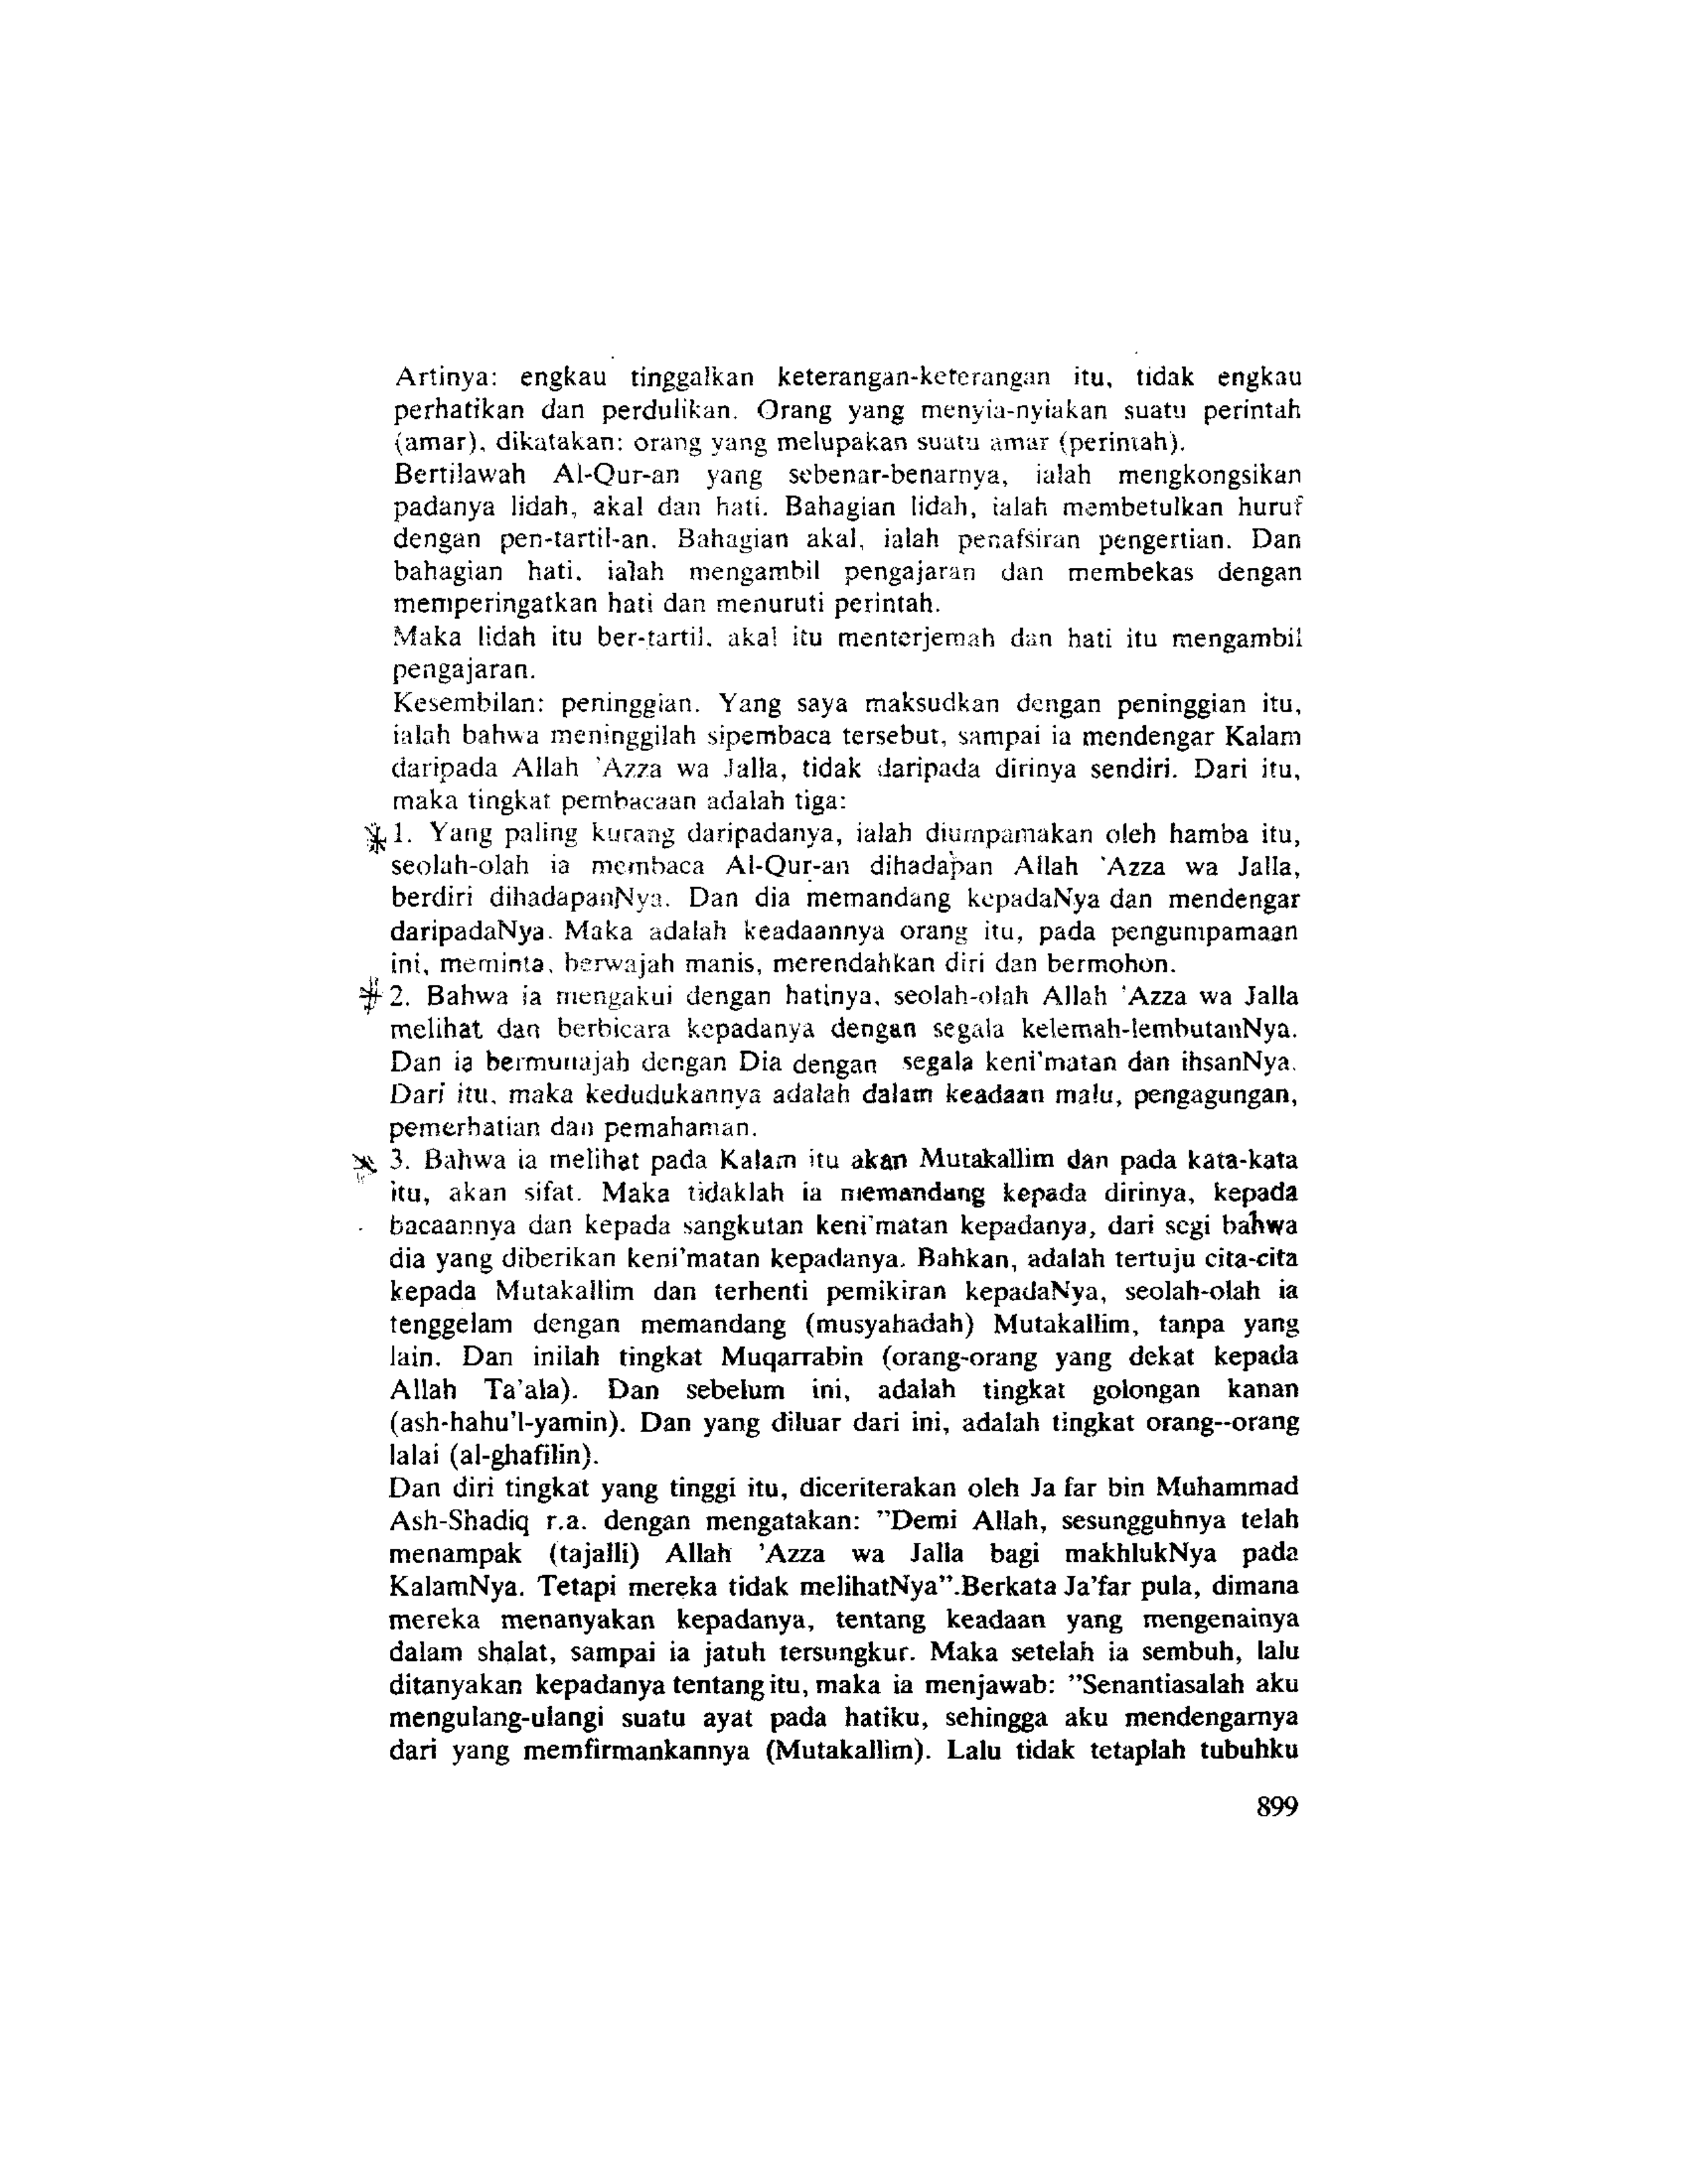 Artinya: engkau tinggalkan keterangan-keterangan itu, tidak engkau
perhatikan dan perdulikan. Orang yang menyia-nyiakan suatu perintah
(amar), dikatakan: orang yang melupakan suatu amar (perintah).
Bertilawah Al-Qur-an yang sebenar-benarnya, ialah mengkongsikan
padanya lidah, akal dan hati. Bahagian lidah, ialah membetulkan huruf
dengan pen-tartil-an. Bahagian akal, ialah penafsiran pengertian. Dan
bahagian hati, ialah mengambil pengajaran dan membekas dengan
memperingatkan hati dan menuruti perintah.
Maka lidah itu ber-tartil, akal itu menterjemah dan hati itu mengambil
pengajaran.
Kesembilan: peninggian. Yang saya maksudkan dengan peninggian itu,
ialah bahwa meninggilah sipembaca tersebut, sampai ia mendengar Kalam
daripada Allah 'Azza wa Jalla, tidak daripada dirinya sendiri. Dari itu,
maka tingkat pembacaan adalah tiga:
1. Yang paling kurang daripadanya, ialah diumpamakan oleh hamba itu,
seolah-olah ia membaca Al-Qur-an dihadapan Allah 'Azza wa Jalla,
berdiri dihadapanNya. Dan dia memandang kepadaNya dan mendengar
daripadaNya. Maka adalah keadaannya orang itu, pada pengumpamaan
ini, meminta, berwajah manis, merendahkan diri dan bermohon.
2. Bahwa ia mengakui dengan hatinya, seolah-olah Allah 'Azza wa Jalla
melihat dan berbicara kepadanya dengan segala kelemah-lembutanNya.
Dan ia bermunajah dengan Dia dengan segala keni'matan dan ihsanNya.
Dari itu, maka kedudukannya adalah dalam keadaan malu, pengagungan,
pemerhatian dan pemahaman.
3. Bahwa ia melihat pada Kalam itu akan Mutakallim dan pada kata-kata
itu, akan sifat. Maka tidaklah ia memandang kepada dirinya, kepada
bacaannya dan kepada sangkutan keni'matan kepadanya, dari segi bahwa
dia yang diberikan keni'matan kepadanya. Bahkan, adalah tertuju cita-cita
kepada Mutakallim dan terhenti pemikiran kepadaNya, seolah-olah ia
tenggelam dengan memandang (musyahadah) Mutakallim, tanpa yang
lain. Dan inilah tingkat Muqarrabin (orang-orang yang dekat kepada
Allah Ta'ala). Dan sebelum ini, adalah tingkat golongan kanan
(ash-hahu'l-yamin). Dan yang diluar dari ini, adalah tingkat orang--orang
lalai (al-ghafilin).
Dan diri tingkat yang tinggi itu, diceriterakan oleh Ja far bin Muhammad
Ash-Shadiq r.a. dengan mengatakan: "Demi Allah, sesungguhnya telah
menampak (tajalli) Allah 'Azza wa Jalla bagi makhlukNya pada
KalamNya. Tetapi mereka tidak melihatNya".Berkata Ja'far pula, dimana
mereka menanyakan kepadanya, tentang keadaan yang mengenainya
dalam shalat, sampai ia jatuh tersungkur. Maka setelah ia sembuh, lalu
ditanyakan kepadanya tentang itu, maka ia menjawab: "Senantiasalah aku
mengulang-ulangi suatu ayat pada hatiku, sehingga aku mendengarnya
dari yang memfirmankannya (Mutakallim). Lalu tidak tetaplah tubuhku
899